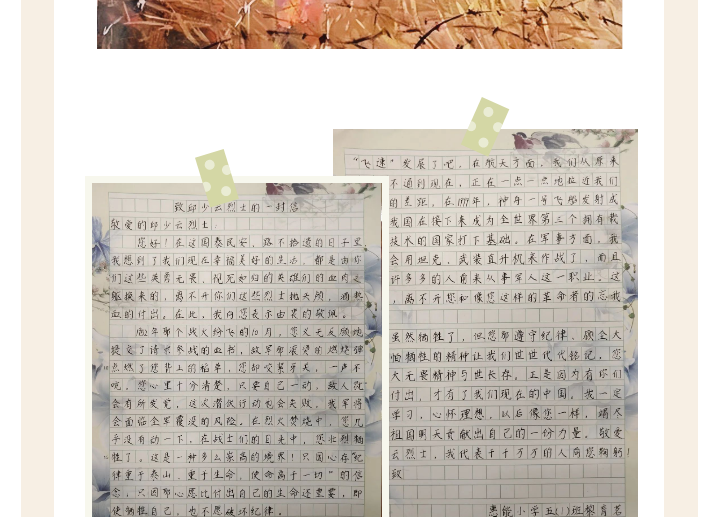 致邱少云烈士的一封信
敬爱的邱少云烈士:
您好!在这国泰民安,路不拾遗的日子里
我想到了我们现在幸福美好的生活,都是由你
们这些英勇无畏,视死如归的英雄们的血肉之
躯换来的,离不开你们这些烈士抛头颅,洒热
血的付出。在此,我向您表示由衷的敬佩。
1952年那个战火纷飞的10月,您义无反顾地
提交了请求参战的血书,敌军那滚烫的燃烧弹
点燃了您背上的稻草,您却咬紧牙关,一声不
吭。您心里十分清楚,只要自己一动,敌人就
会有所发觉,这次潜伏行动也会失败。我军将
会面临全军覆没的风险。在烈火焚烧中,您几
乎没有动一下,在战士们的目光中,您壮烈牺
牲了。这是一种多么崇高的境界!只因心存“纪
律重于泰山,重于生命,使命高于一切”的信
念,只因那心愿比付出自己的生命还重要,即
使牺牲自己,也不愿破坏纪律。
“飞速”发展了吧。在航天方面,我们从原来
不道到现在,正在一点一点地拉近我们
的差距。在1999年,神舟一号飞船发射成
我国在接下来成为全世界第三个拥有载
技术的国家打下基础。在军事方面,我
会用坦克,武装直升机来作战了,而且
许多多的人前来从事军人这一职业。这
,离不开您和像您这样的革命者的忘我
虽然牺牲了,但您那遵守纪律、顾全大
怕牺牲的精神让我们世世代代铭记,您
大无畏精神与世长存。正是因为有你们
付出,才有了我们现在的中国。我一定
学习,心怀理想,以后像您一样,竭尽
祖国明天贡献出自己的一份力量。敬爱
云烈士,我代表千千万万的人向您鞠躬!
致
小学五(1)班